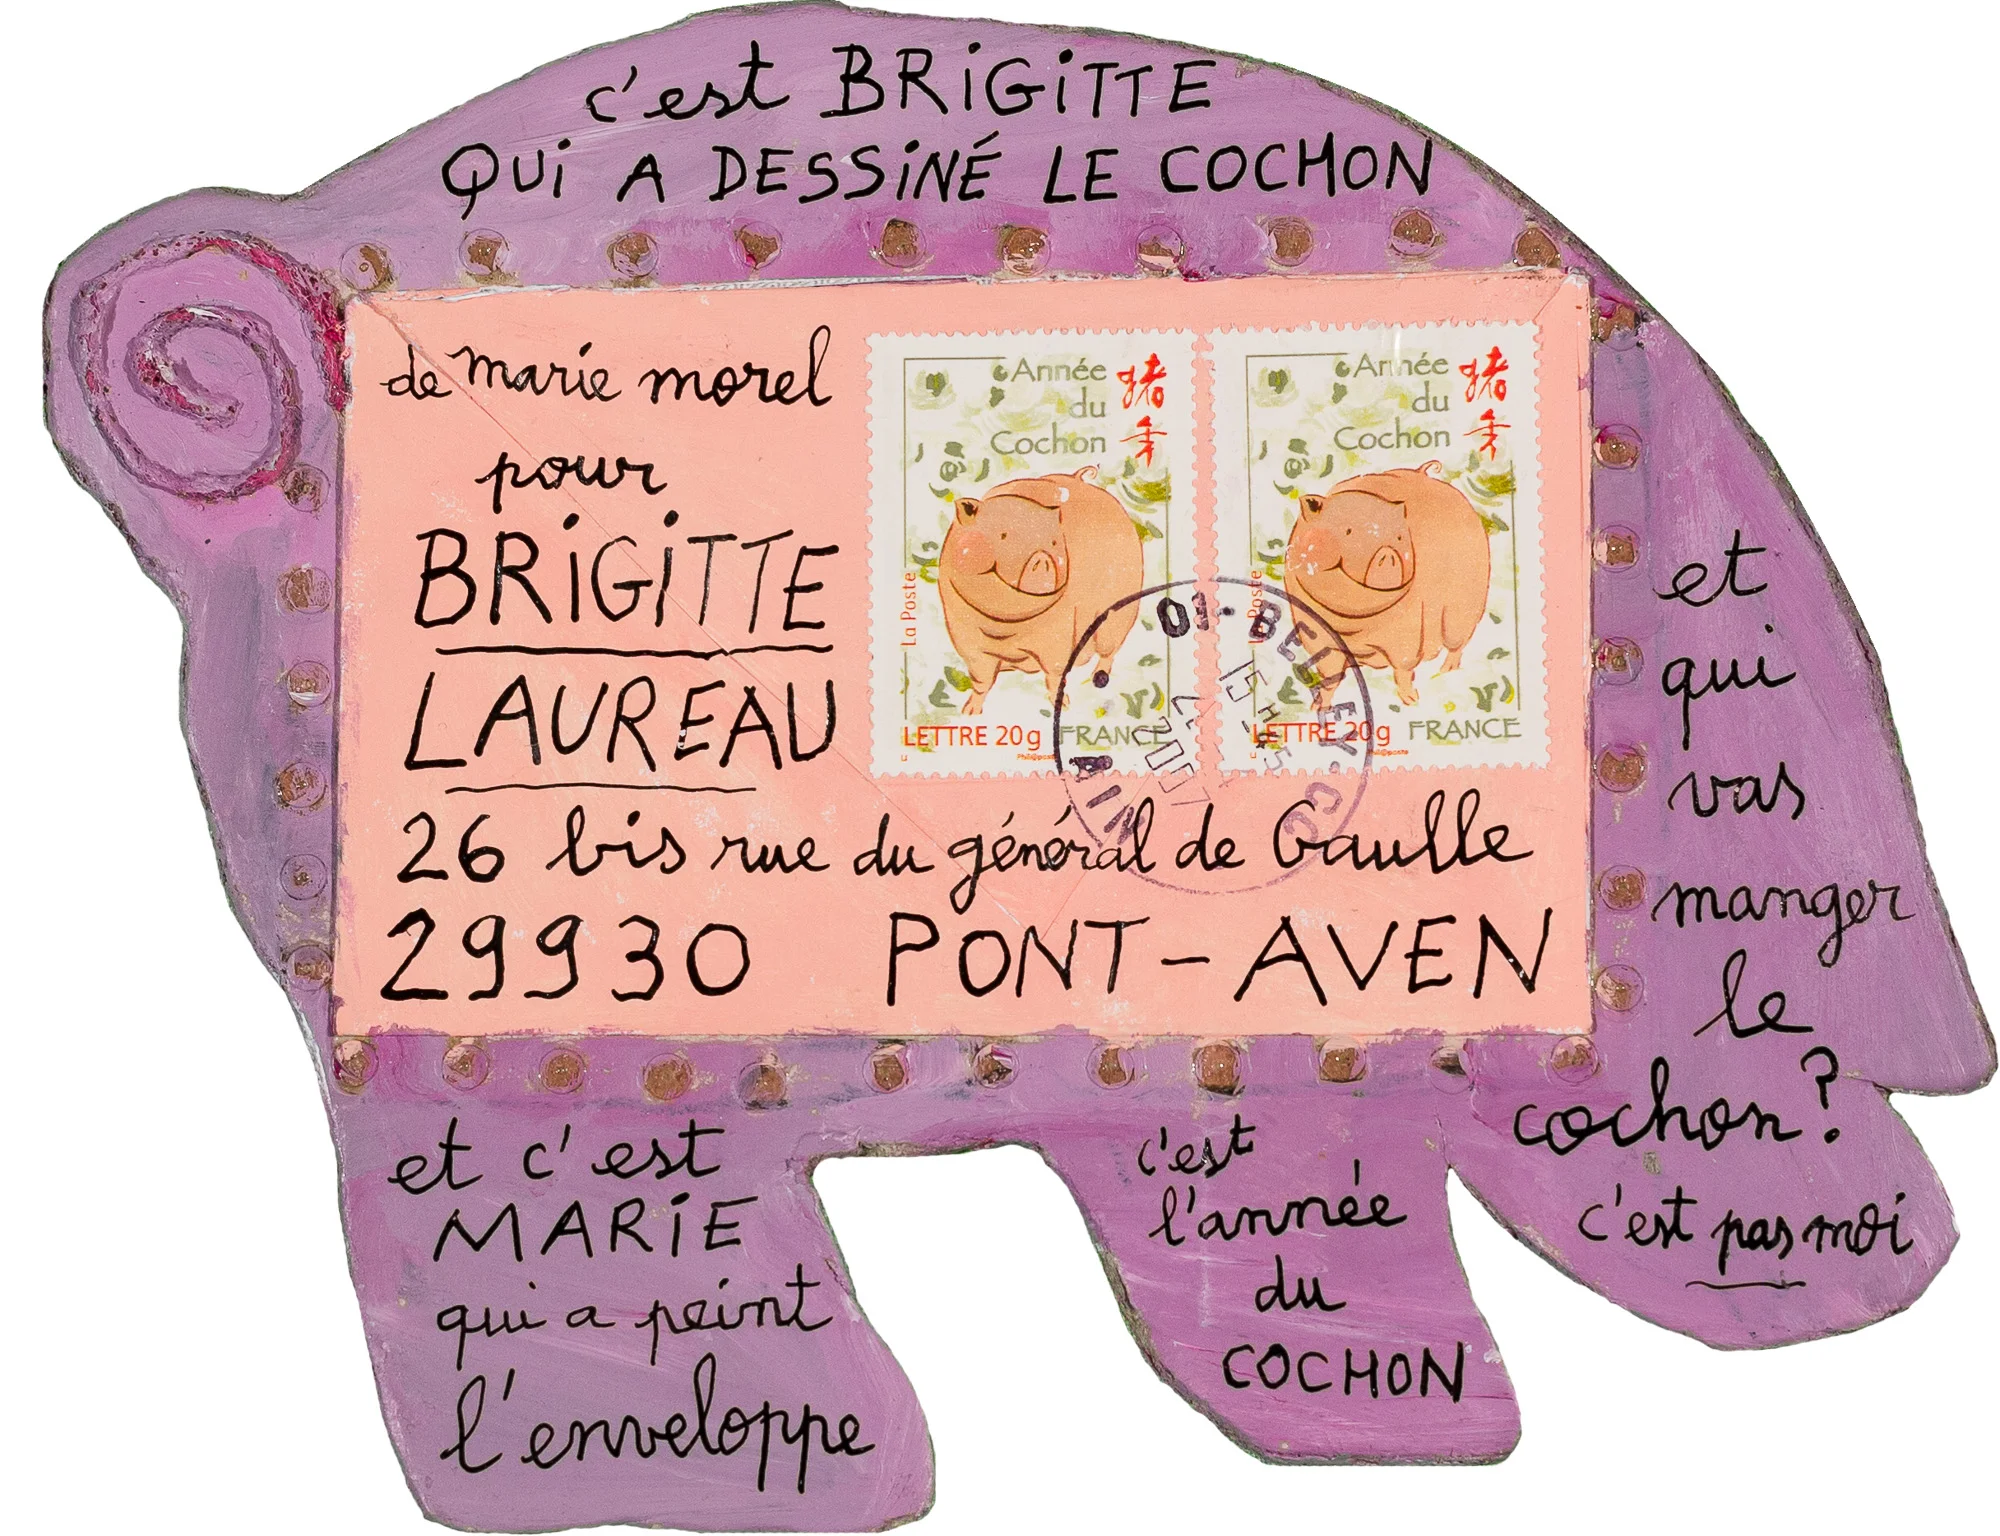 c'est BRiGiTTE
QUi A DESSiNÉ LE COCHON
de marie morel
pour
BRiGiTTE
LAUREAU
26 bis rue du général de Gaulle
29930 PONT-AVEN
Année
du
Cochon
猪
年
La Poste
LETTRE 20g FRANCE
Phil@poste
Année
du
Cochon
猪
年
La Poste
LETTRE 20g FRANCE
Phil@poste
01-BELLEY-CC
15H45
2007
AIN
et
qui
vas
manger
le
cochon?
c'est pas moi
et c'est
MARiE
qui a peint
l'enveloppe
c'est
l'année
du
COCHON